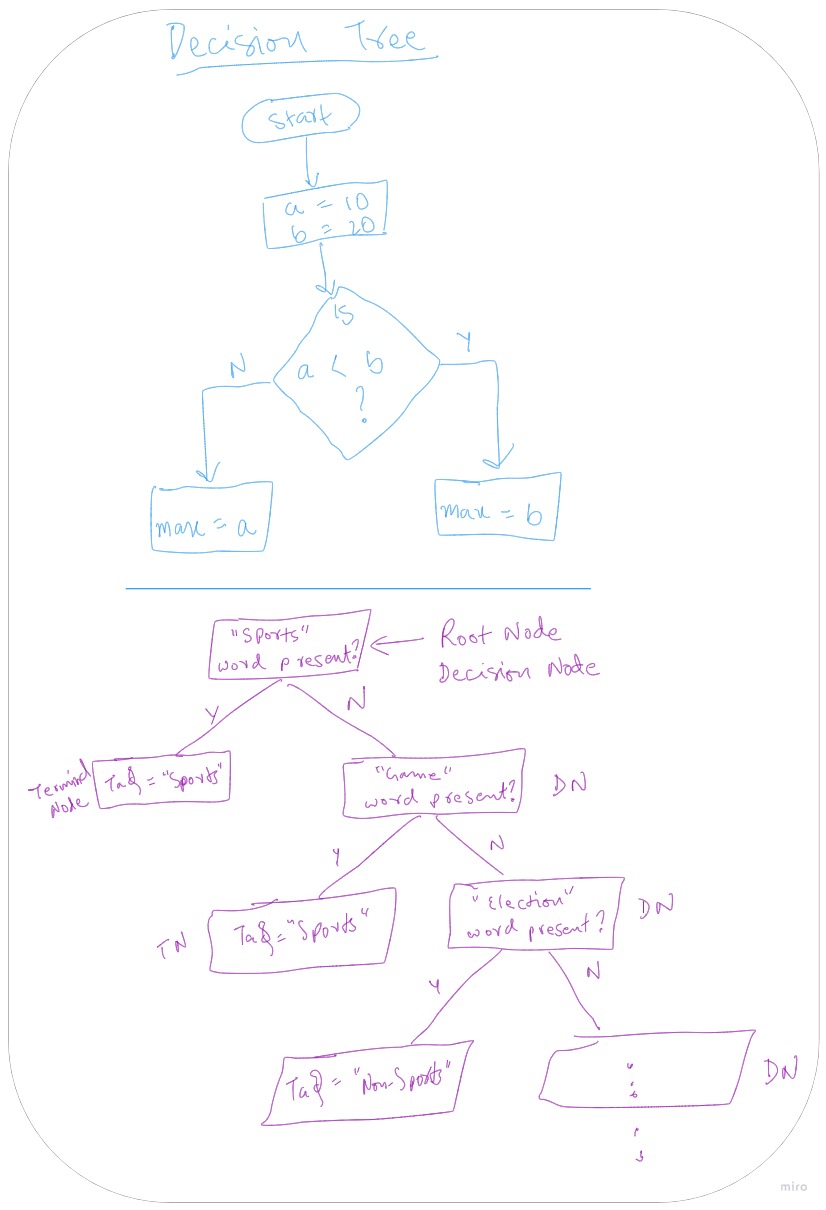 Decision Tree
start
a = 10
b = 20
is
a < b
?
N
Y
max = a
max = b
"Sports"
word present?
Root Node
Decision Node
Y
N
Terminal
Node
Tag = "Sports"
"Game"
word present?
DN
Y
N
TN
Tag = "Sports"
"Election"
word present?
DN
Y
N
Tag = "Non-Sports"
DN
miro